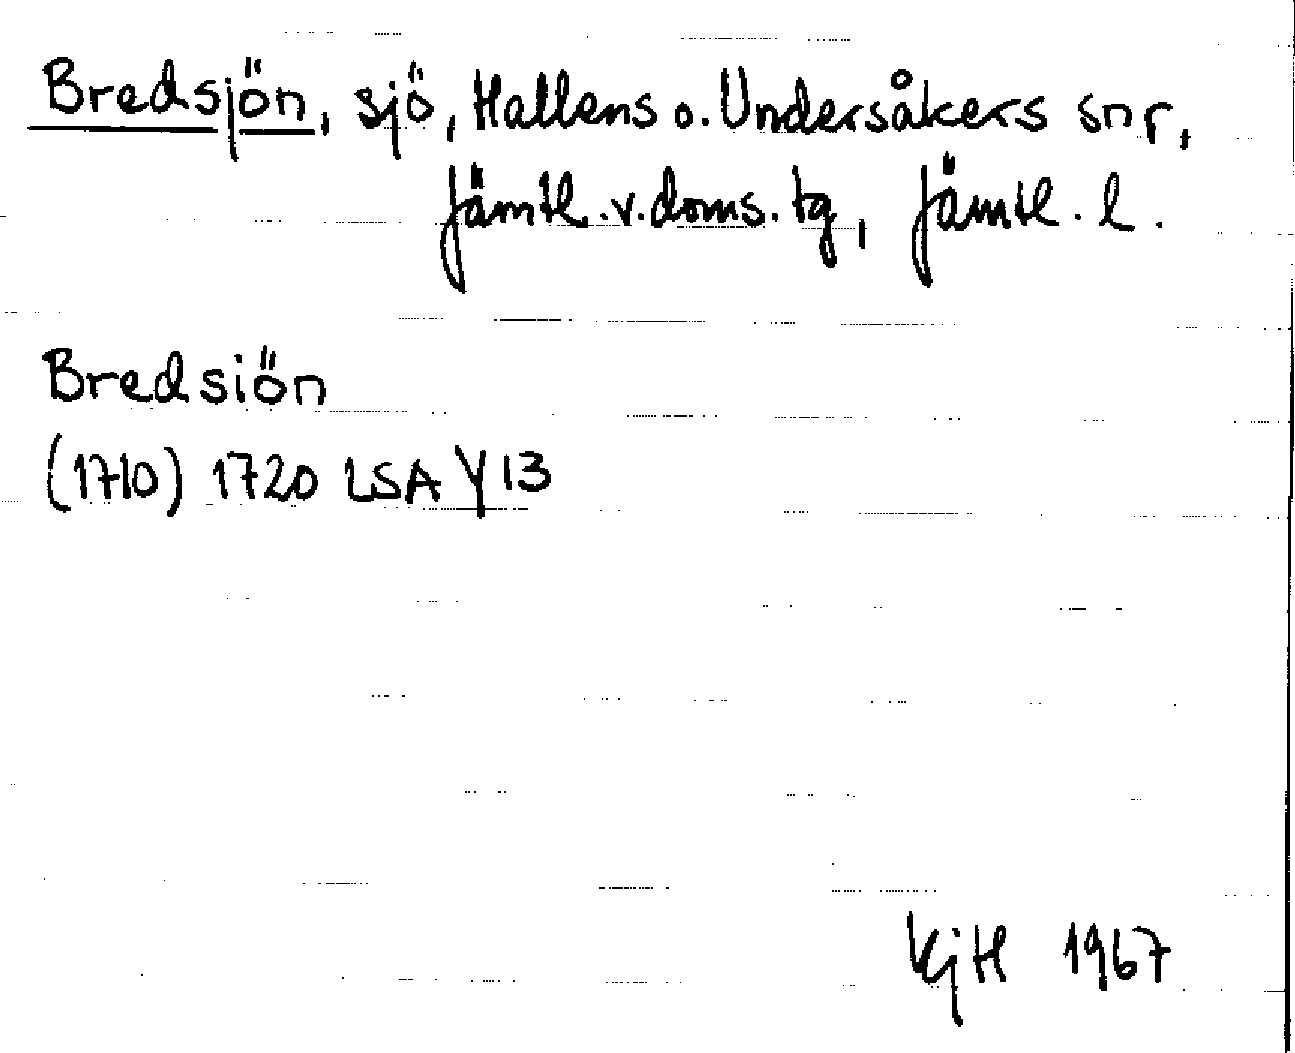 Bredsjön, sjö, Hallens o. Undersåkers snr,
Jämtl. v. doms. tg, Jämtl. l.
Bredsiön
(1710) 1720 LSA Y 13
KjH 1967